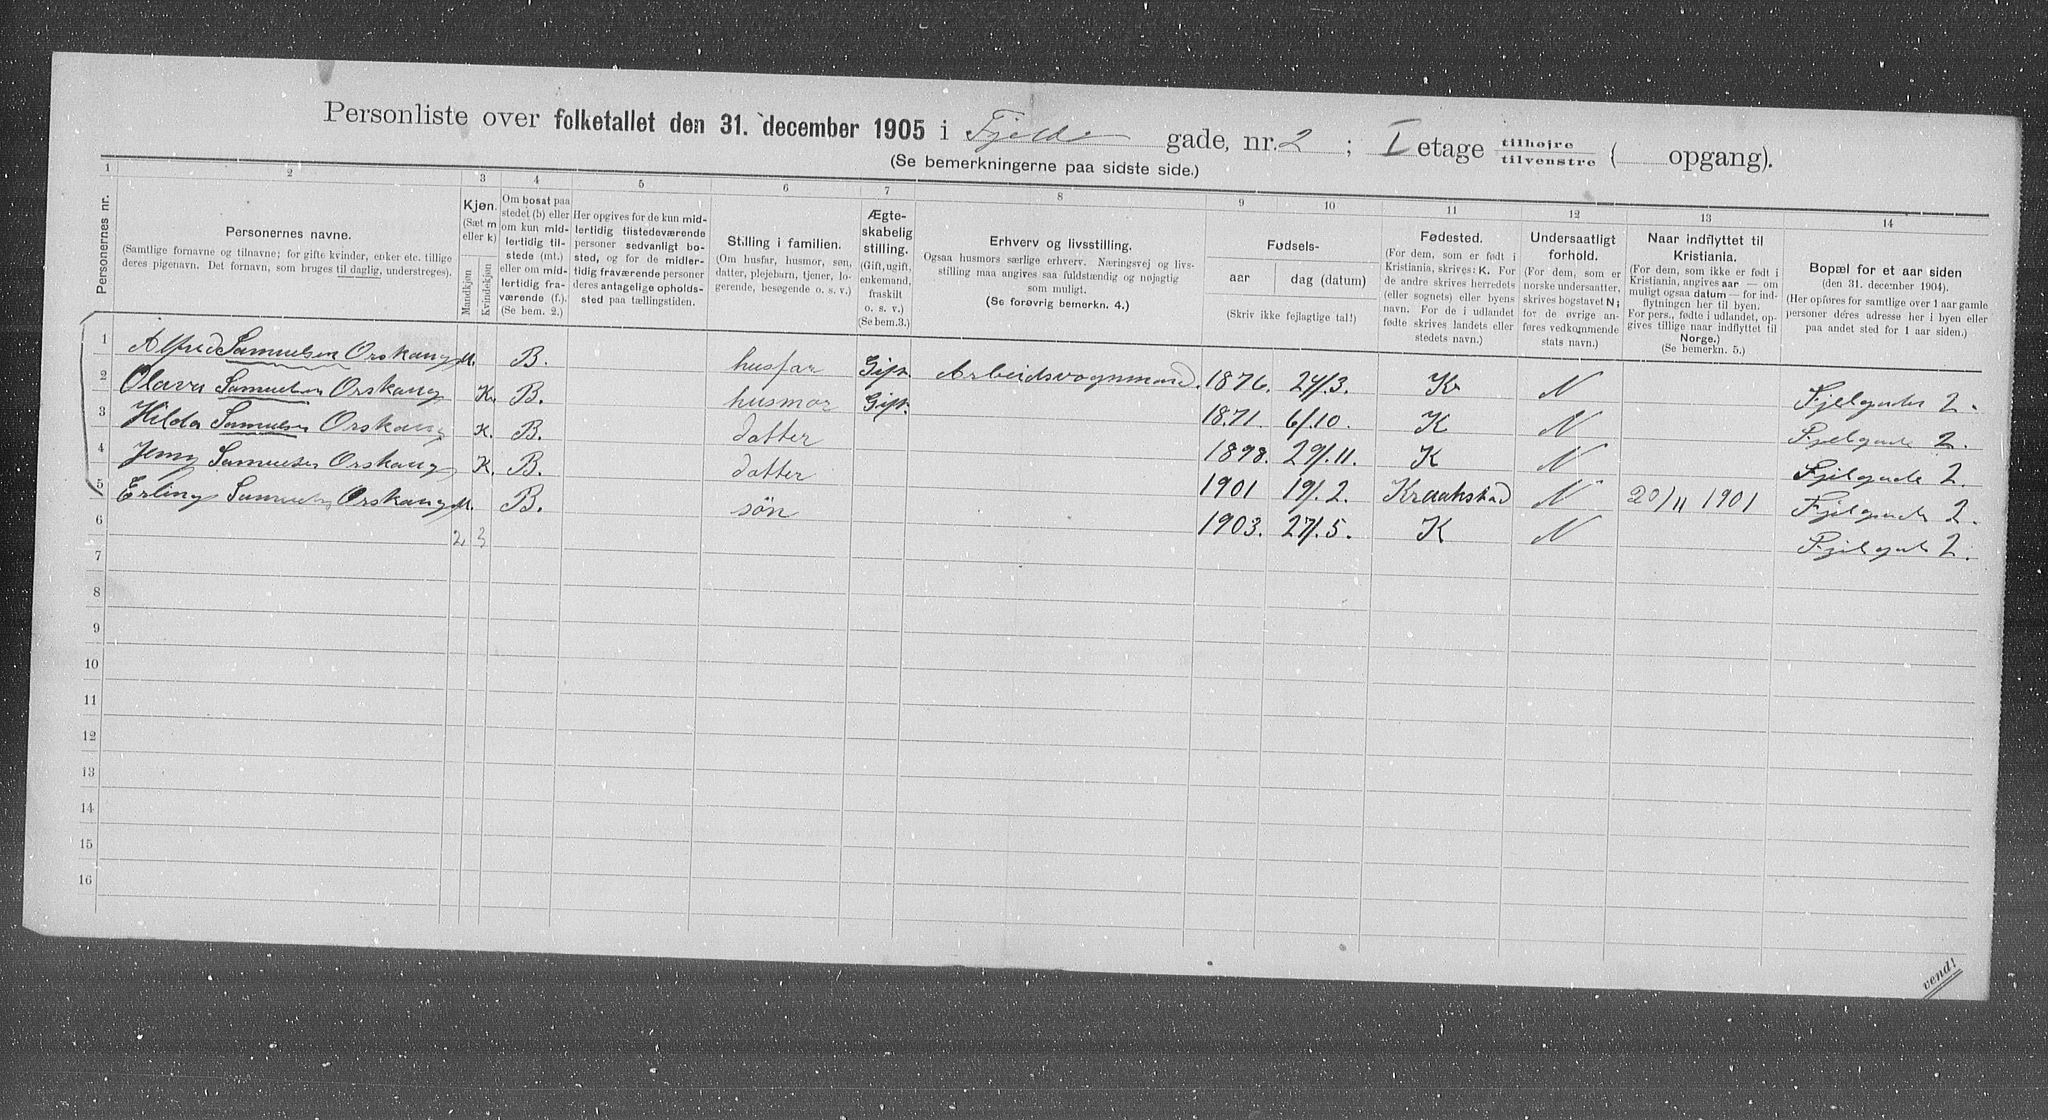 Personliste over folketallet den 31. december 1905 i Fjeld gade, nr. 2 ; I etage tilhøjre tilvenstre ( opgang).
(Se bemerkningerne paa sidste side.)
1 2 3 4 5 6 7 8 9 10 11 12 13 14
Personernes nr.
Personernes navne.
(Samtlige fornavne og tilnavne; for gifte kvinder, enker etc. tillige
deres pigenavn. Det fornavn, som bruges til daglig, understreges).
Kjøn.
(Sæt m
eller k)
Mandkjøn
Kvindekjøn
Om bosat paa
stedet (b) eller
om kun mid-
lertidig til-
stede (mt.)
eller om mid-
lertidig fra-
værende (f.).
(Se bem. 2.)
Her opgives for de kun mid-
lertidig tilstedeværende
personer sedvanligt bo-
sted, og for de midler-
tidig fraværende personer
deres antagelige opholds-
sted paa tællingstiden.
Stilling i familien.
(Om husfar, husmor, søn,
datter, plejebarn, tjener, lo-
gerende, besøgende o. s. v.)
Ægte-
skabelig
stilling.
(Gift, ugift,
enkemand,
fraskilt
o. s. v.)
(Se bem.3.)
Erhverv og livsstilling.
Ogsaa husmors særlige erhverv. Næringsvej og livs-
stilling maa angives saa fuldstændig og nøjagtig
som muligt.
(Se forøvrig bemerkn. 4.)
Fødsels-
aar dag (datum)
(Skriv ikke fejlagtige tal!)
Fødested.
(For dem, som er født i
Kristiania, skrives: K. For
de andre skrives herredets
(eller sognets) eller byens
navn. For de i udlandet
fødte skrives landets eller
stedets navn.)
Undersaatligt
forhold.
(For dem, som er
norske undersaatter,
skrives bogstavet N;
for de øvrige an-
føres vedkommende
stats navn.)
Naar indflyttet til
Kristiania.
(For dem, som ikke er født i
Kristiania, angives aar — om
muligt ogsaa datum — for ind-
flytningen her til byen.
For pers., fødte i udlandet, op-
gives tillige naar indflyttet til
Norge.)
(Se bemerkn. 5.)
Bopæl for et aar siden
(den 31. december 1904).
(Her opføres for samtlige over 1 aar gamle
personer deres adresse her i byen eller
paa andet sted for 1 aar siden.)
1 Alfred Samuelsen Orskaug M. B. husfar Gift. Arbeidsvognmand. 1876. 24/.3. K N Fjelgade 2.
2 Olava Samuelsen Orskaug K. B. husmor Gift. 1871. 6/.10. K N Fjelgade 2.
3 Hilda Samuelsen Orskaug K. B. datter 1898. 29/.11. K N Fjelgade 2.
4 Jenny Samuelsen Orskaug K. B. datter 1901 19/.2. Kraakstad N 20/11 1901 Fjelgade 2.
5 Erling Samuelsen Orskaug M. B. søn 1903. 27/.5. K N Fjelgade 2.
6 2 3
7
8
9
10
11
12
13
14
15
16
vend!